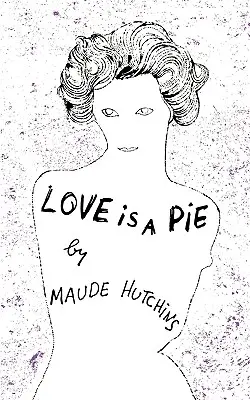 LOVE iS A PiE
by
MAUDE HUTCHiNS